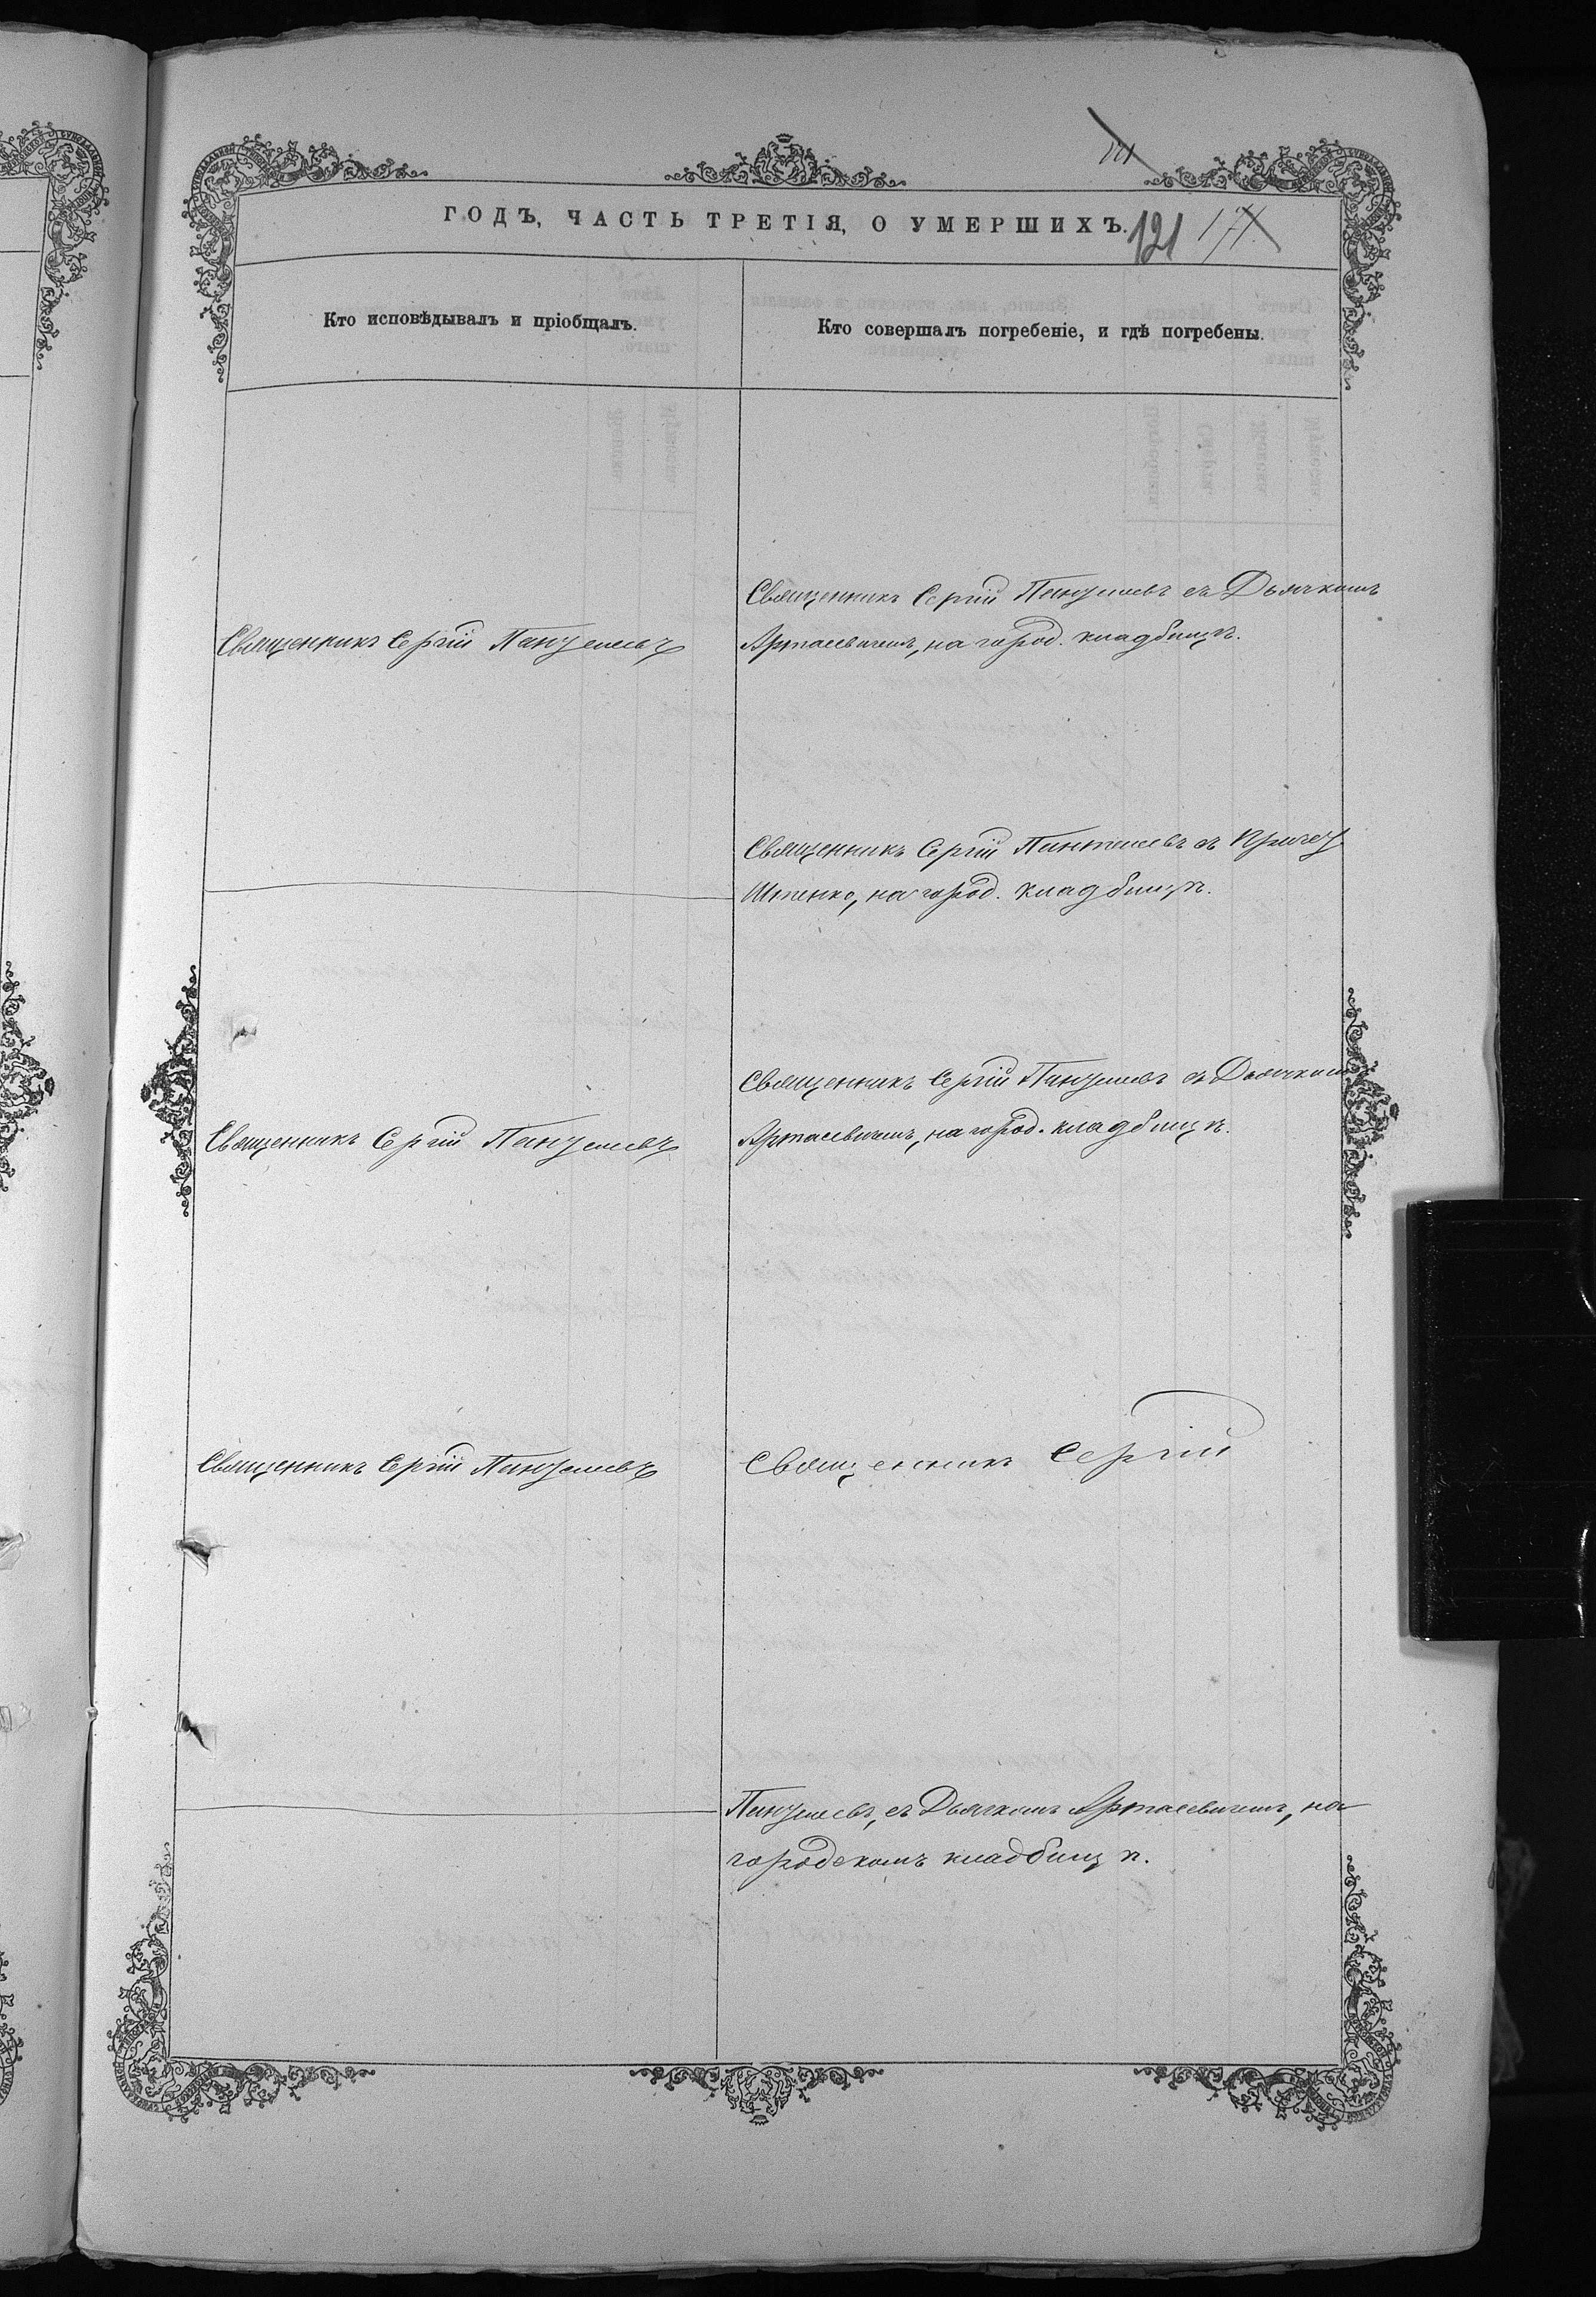 ГОДЪ, ЧАСТЬ ТРЕТІЯ, О УМЕРШИХЪ.
121 171
Кто исповѣдывалъ и пріобщалъ.
Кто совершалъ погребеніе, и гдѣ погребены.
Священникъ Сергій Пантелеевъ
Священникъ Сергій Пантелеевъ съ Дьячкомъ
Артасевичемъ, на город. кладбищѣ.
Священникъ Сергій Пантелеевъ съ
на город. кладбищѣ.
Священникъ Сергій Пантелеевъ
Священникъ Сергій Пантелеевъ съ Дьячкомъ
Артасевичемъ, на город. кладбищѣ.
Священникъ Сергій Пантелеевъ
Священникъ Сергій
Пантелеевъ, съ Дьячкомъ Артасевичемъ, на
городскомъ кладбищѣ.